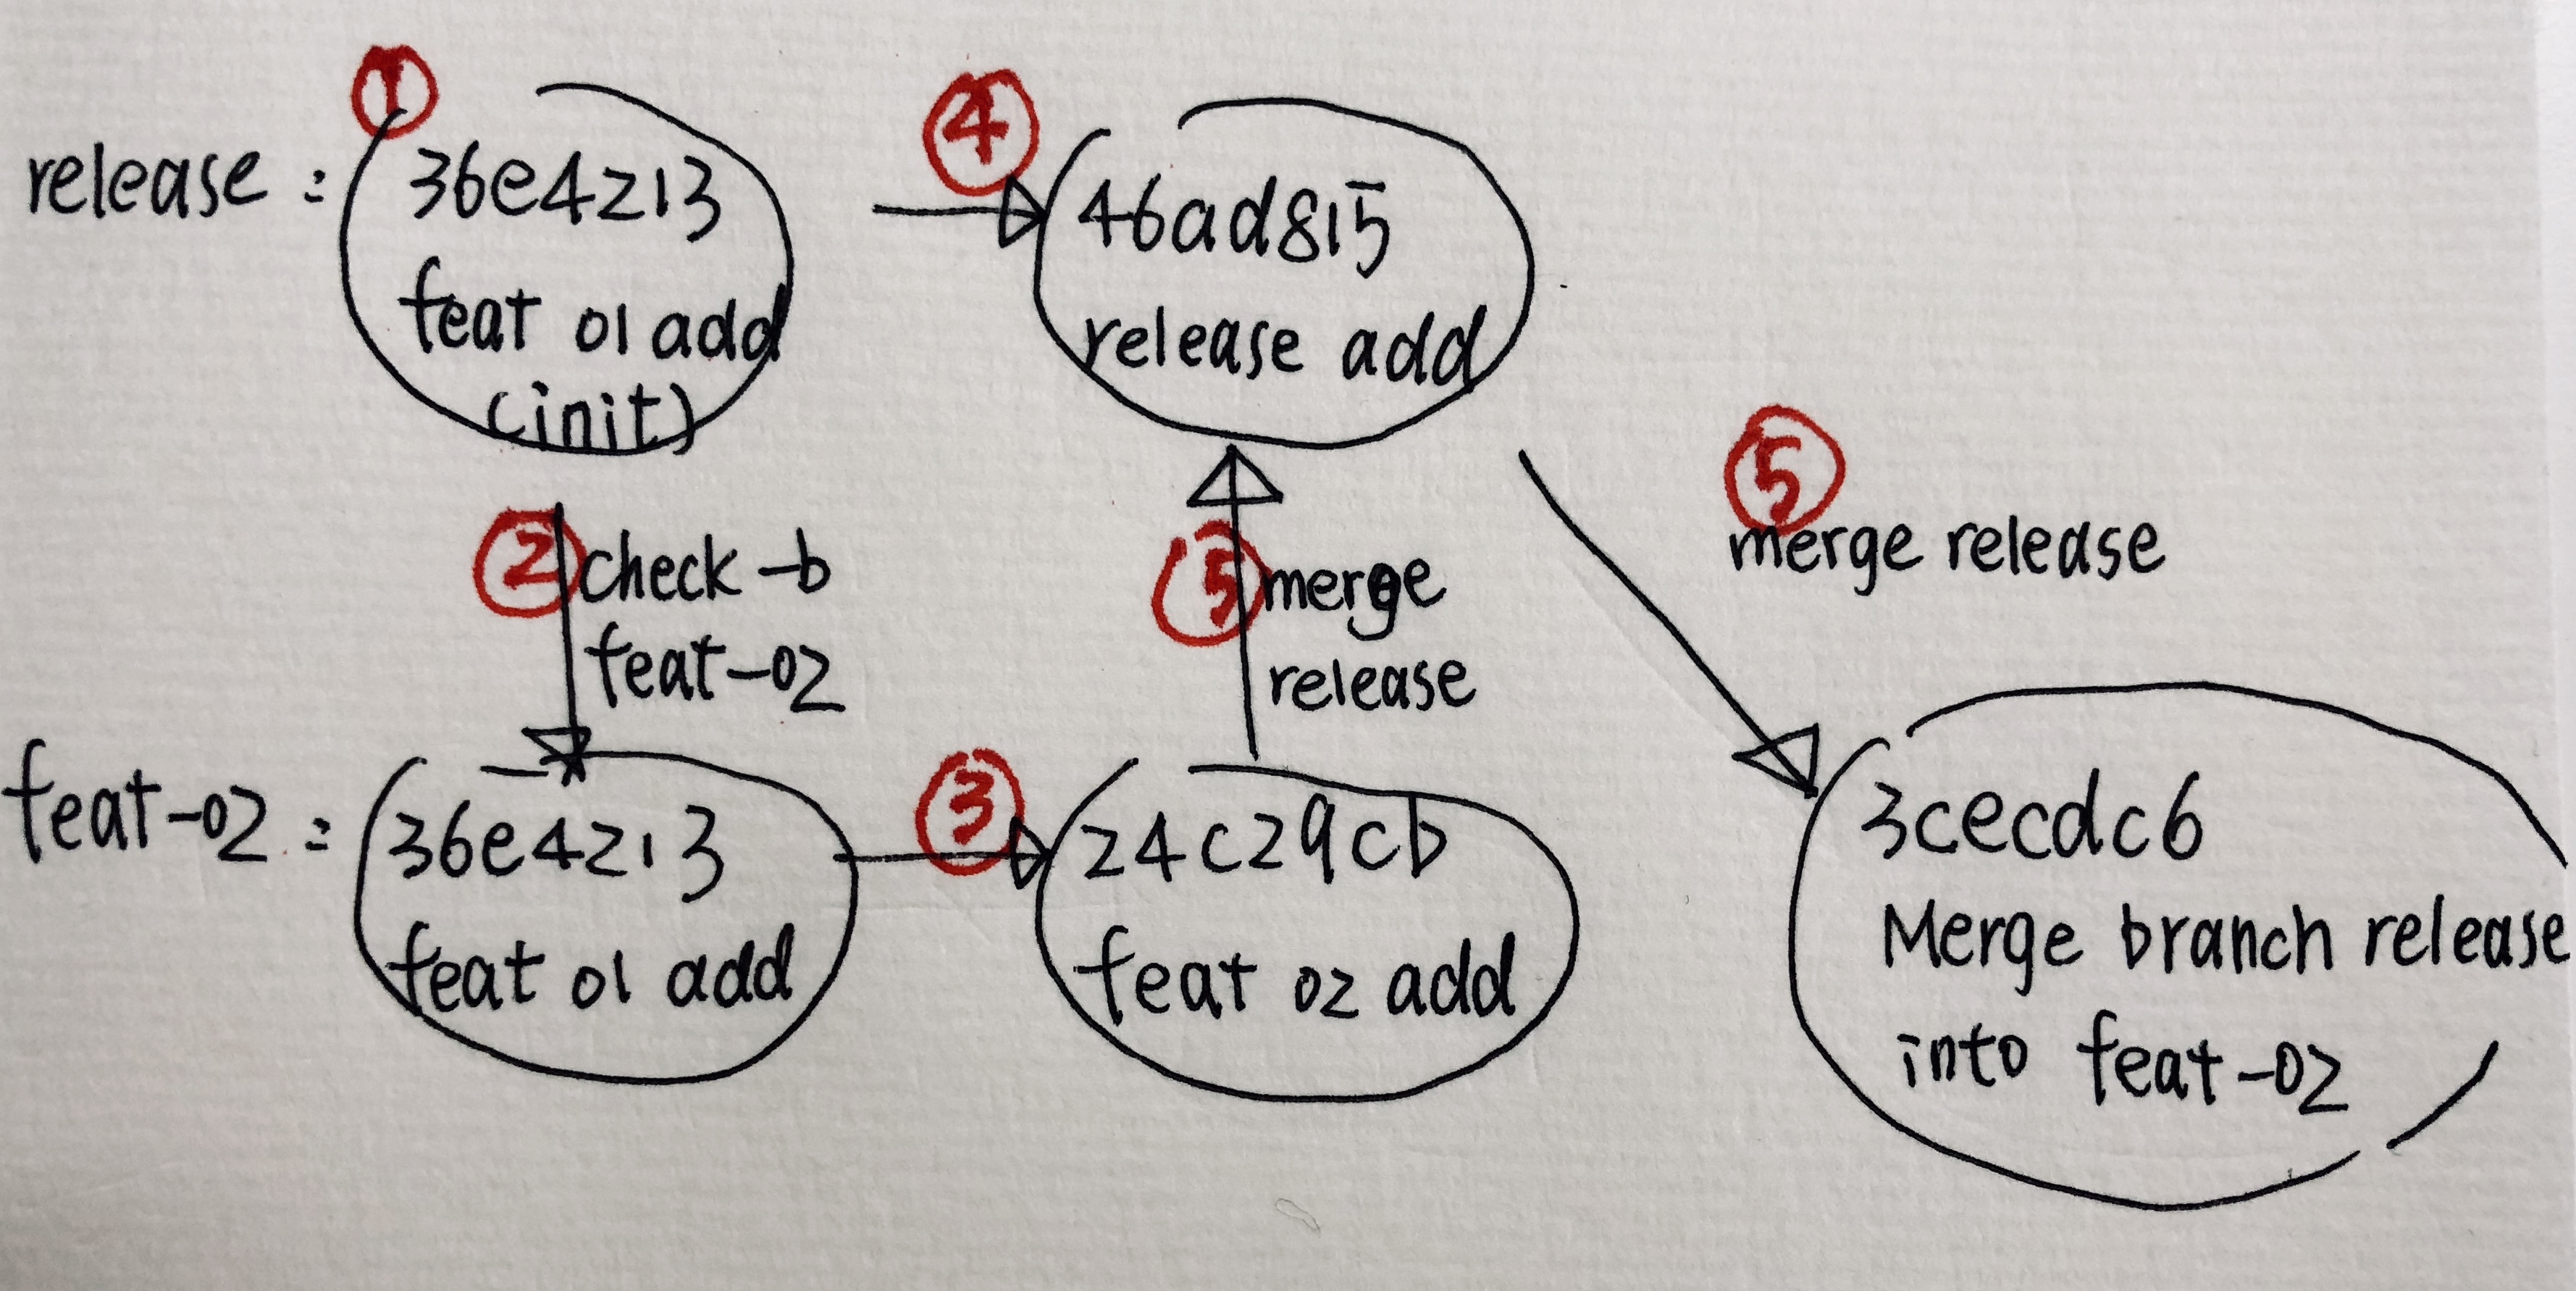 ①
release :
36e4213
feat 01 add
(init)
④
46ad815
release add
② check -b
feat-02
⑤ merge
release
⑤
merge release
feat-02 :
36e4213
feat 01 add
③
24c29cb
feat 02 add
3cecdc6
Merge branch release
into feat-02